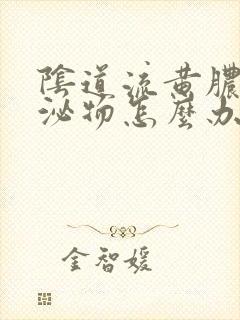 陰道流黄膿
泌物怎麼办
金智媛